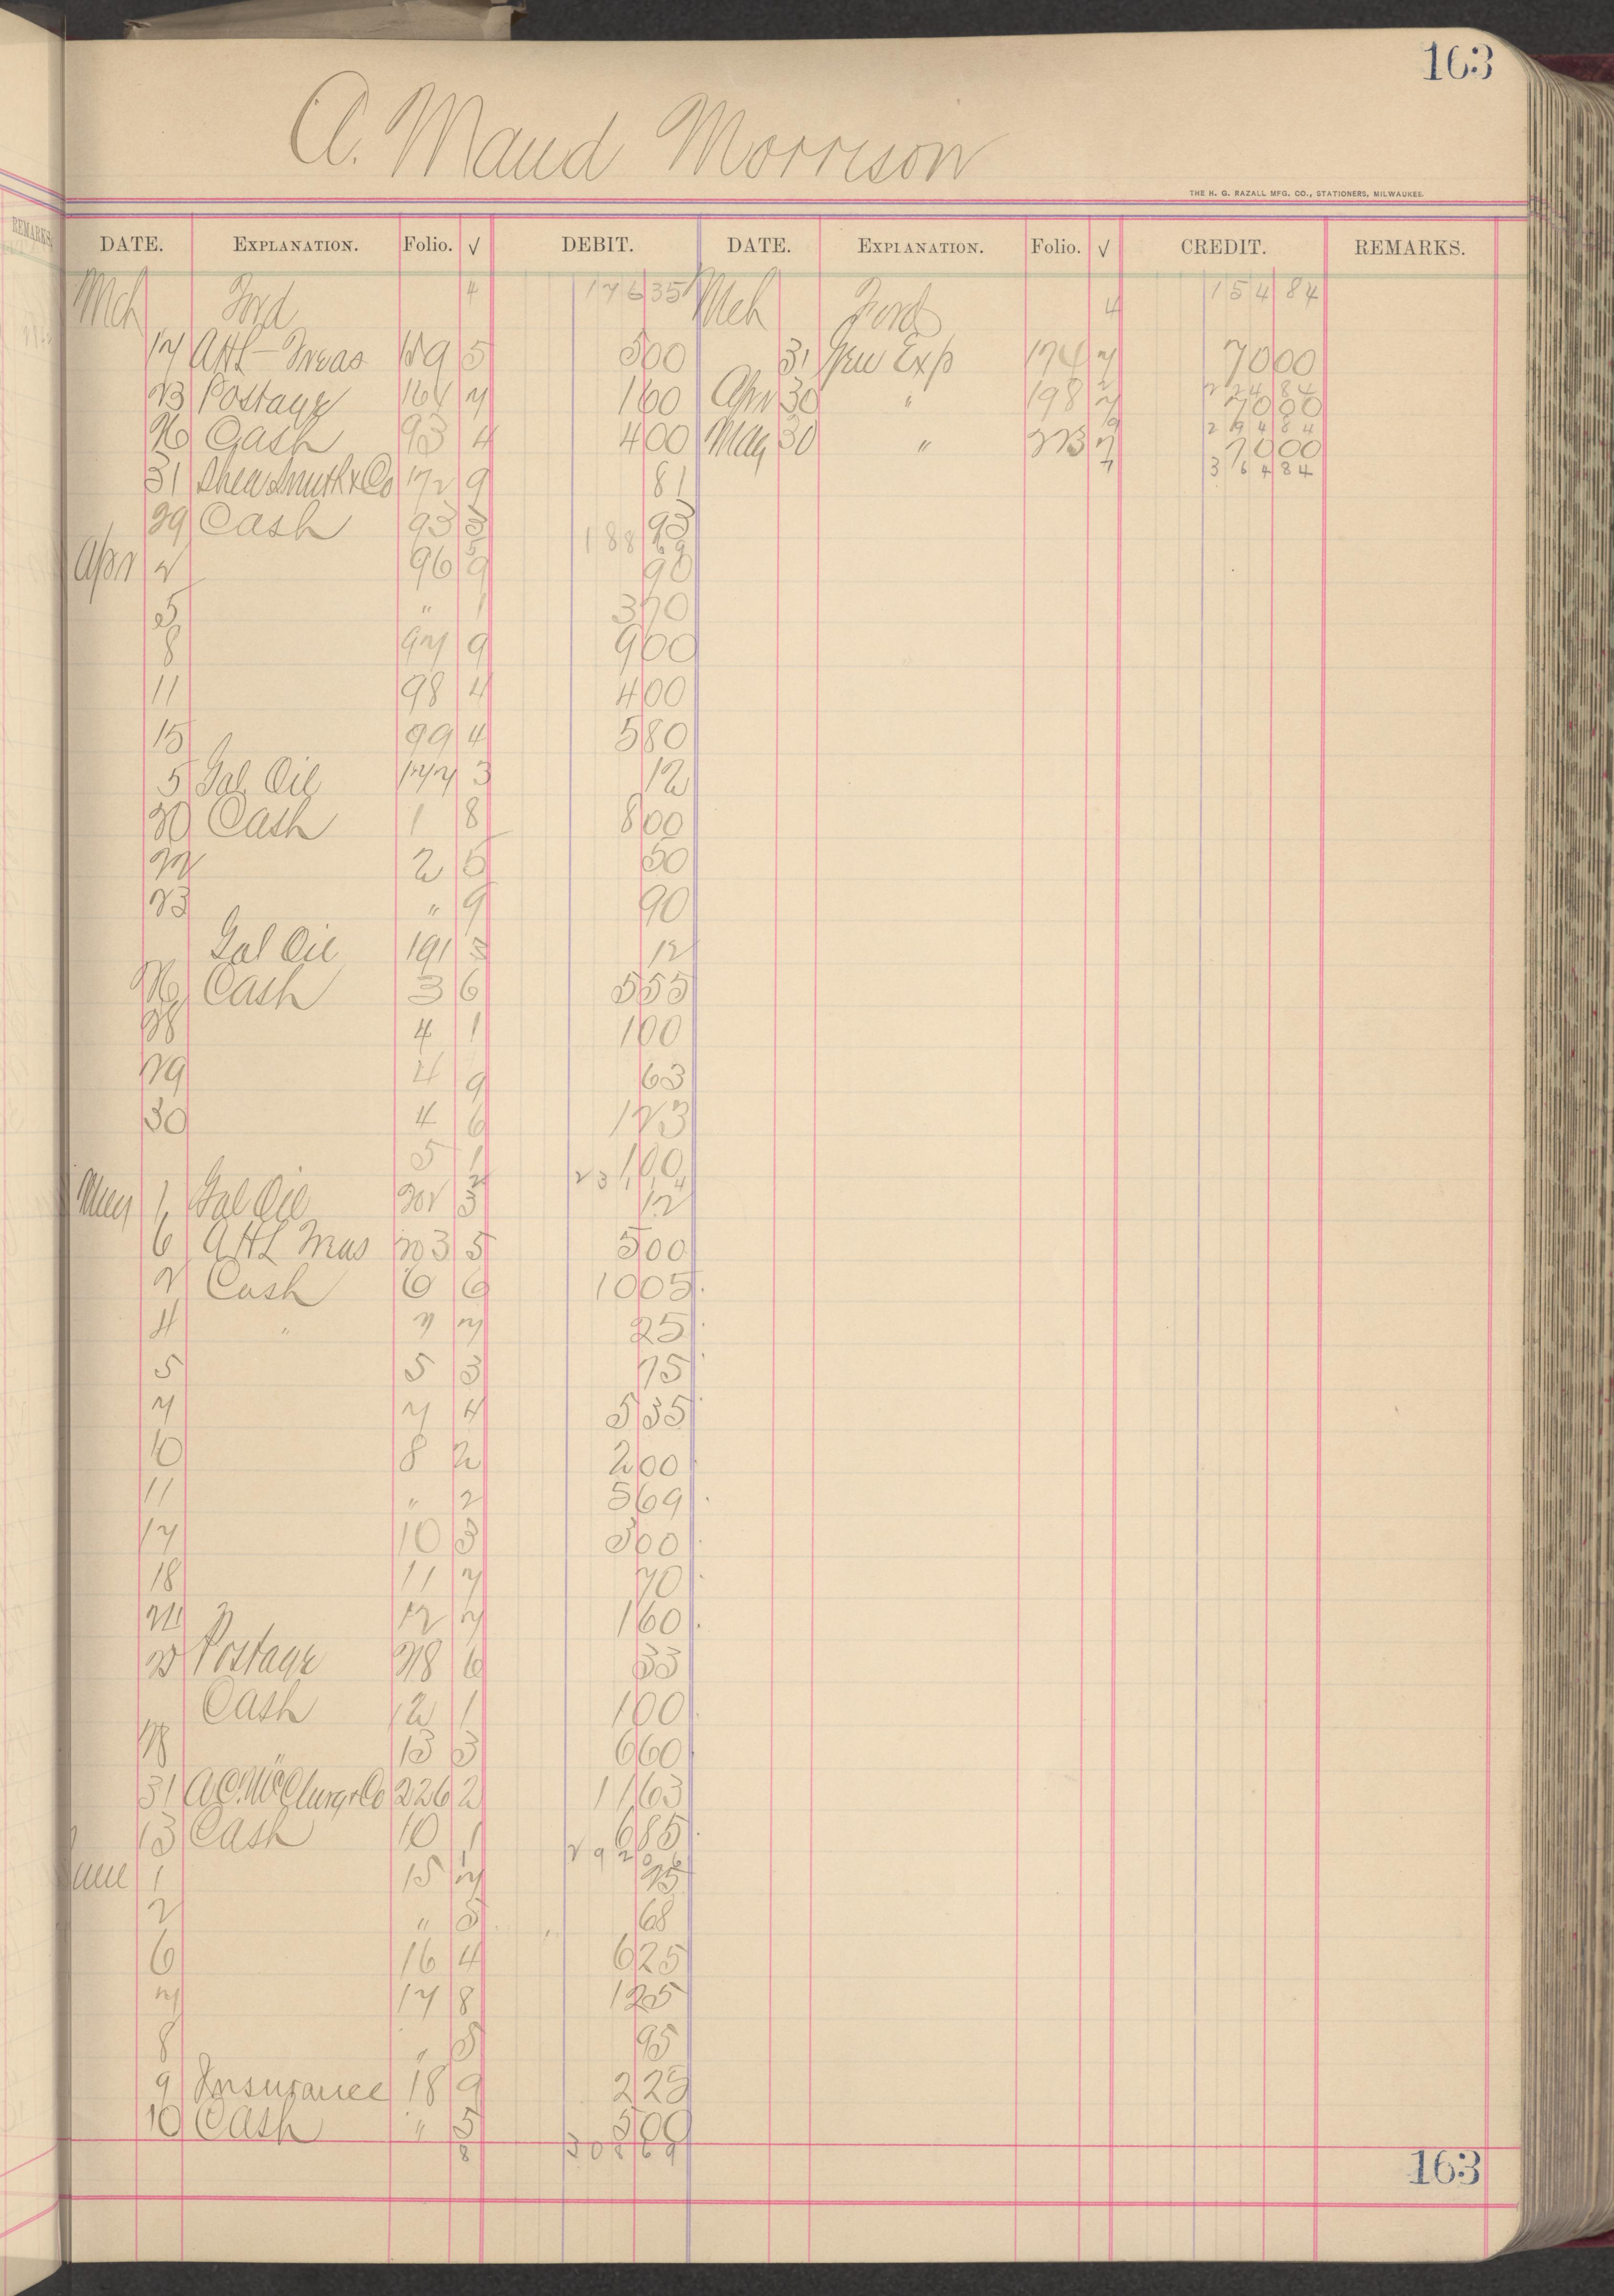 163
A. Maud Morrison
THE H. G. RAZALL MFG. CO., STATIONERS, MILWAUKEE.
REMARKS.
DATE. EXPLANATION. Folio. √ DEBIT. DATE. EXPLANATION. Folio. √ CREDIT. REMARKS.
Mch Ford 4 176 35 Mch Ford 4 154 84
17 AHL-Treas 159 5 5 00 31 Gen Exp 174 7 70 00
23 Postage 164 7 1 60 Apr 30 " 198 7 70 00
2 224 84
26 Cash 93 4 4 00 May 30 " 223 7 70 00
9 294 84
31 Shea Smith & Co 172 9 81
7 364 84
29 Cash 93 3 93
5 188 69
Apr 2 96 9 90
5 " 1 3 70
8 97 9 9 00
11 98 4 4 00
15 99 4 5 80
5 Gal Oil 177 3 12
20 Cash 1 8 8 00
22 2 5 50
23 " 9 90
Gal Oil 191 3 12
26 Cash 3 6 5 55
28 4 1 1 00
29 4 9 63
30 4 6 1 23
5 1 1 00
2 231 14
May 1 Gal Oil 202 3 12
6 AHL Treas 203 5 5 00
2 Cash 6 6 10 05
4 " 7 7 25
5 5 3 75
7 7 4 5 35
10 8 2 2 00
11 " 2 5 69
17 10 3 3 00
18 11 7 70
24 12 7 1 60
25 Postage 218 6 33
Cash 12 1 1 00
28 " 13 3 6 60
31 A.C. McClurg & Co 226 2 11 63
13 Cash 10 1 6 85
1 292 06
June 1 15 7 25
2 " 5 68
6 16 4 6 25
7 17 8 1 25
8 " 5 95
9 Insurance 18 9 2 25
10 Cash " 5 5 00
8 308 69
163